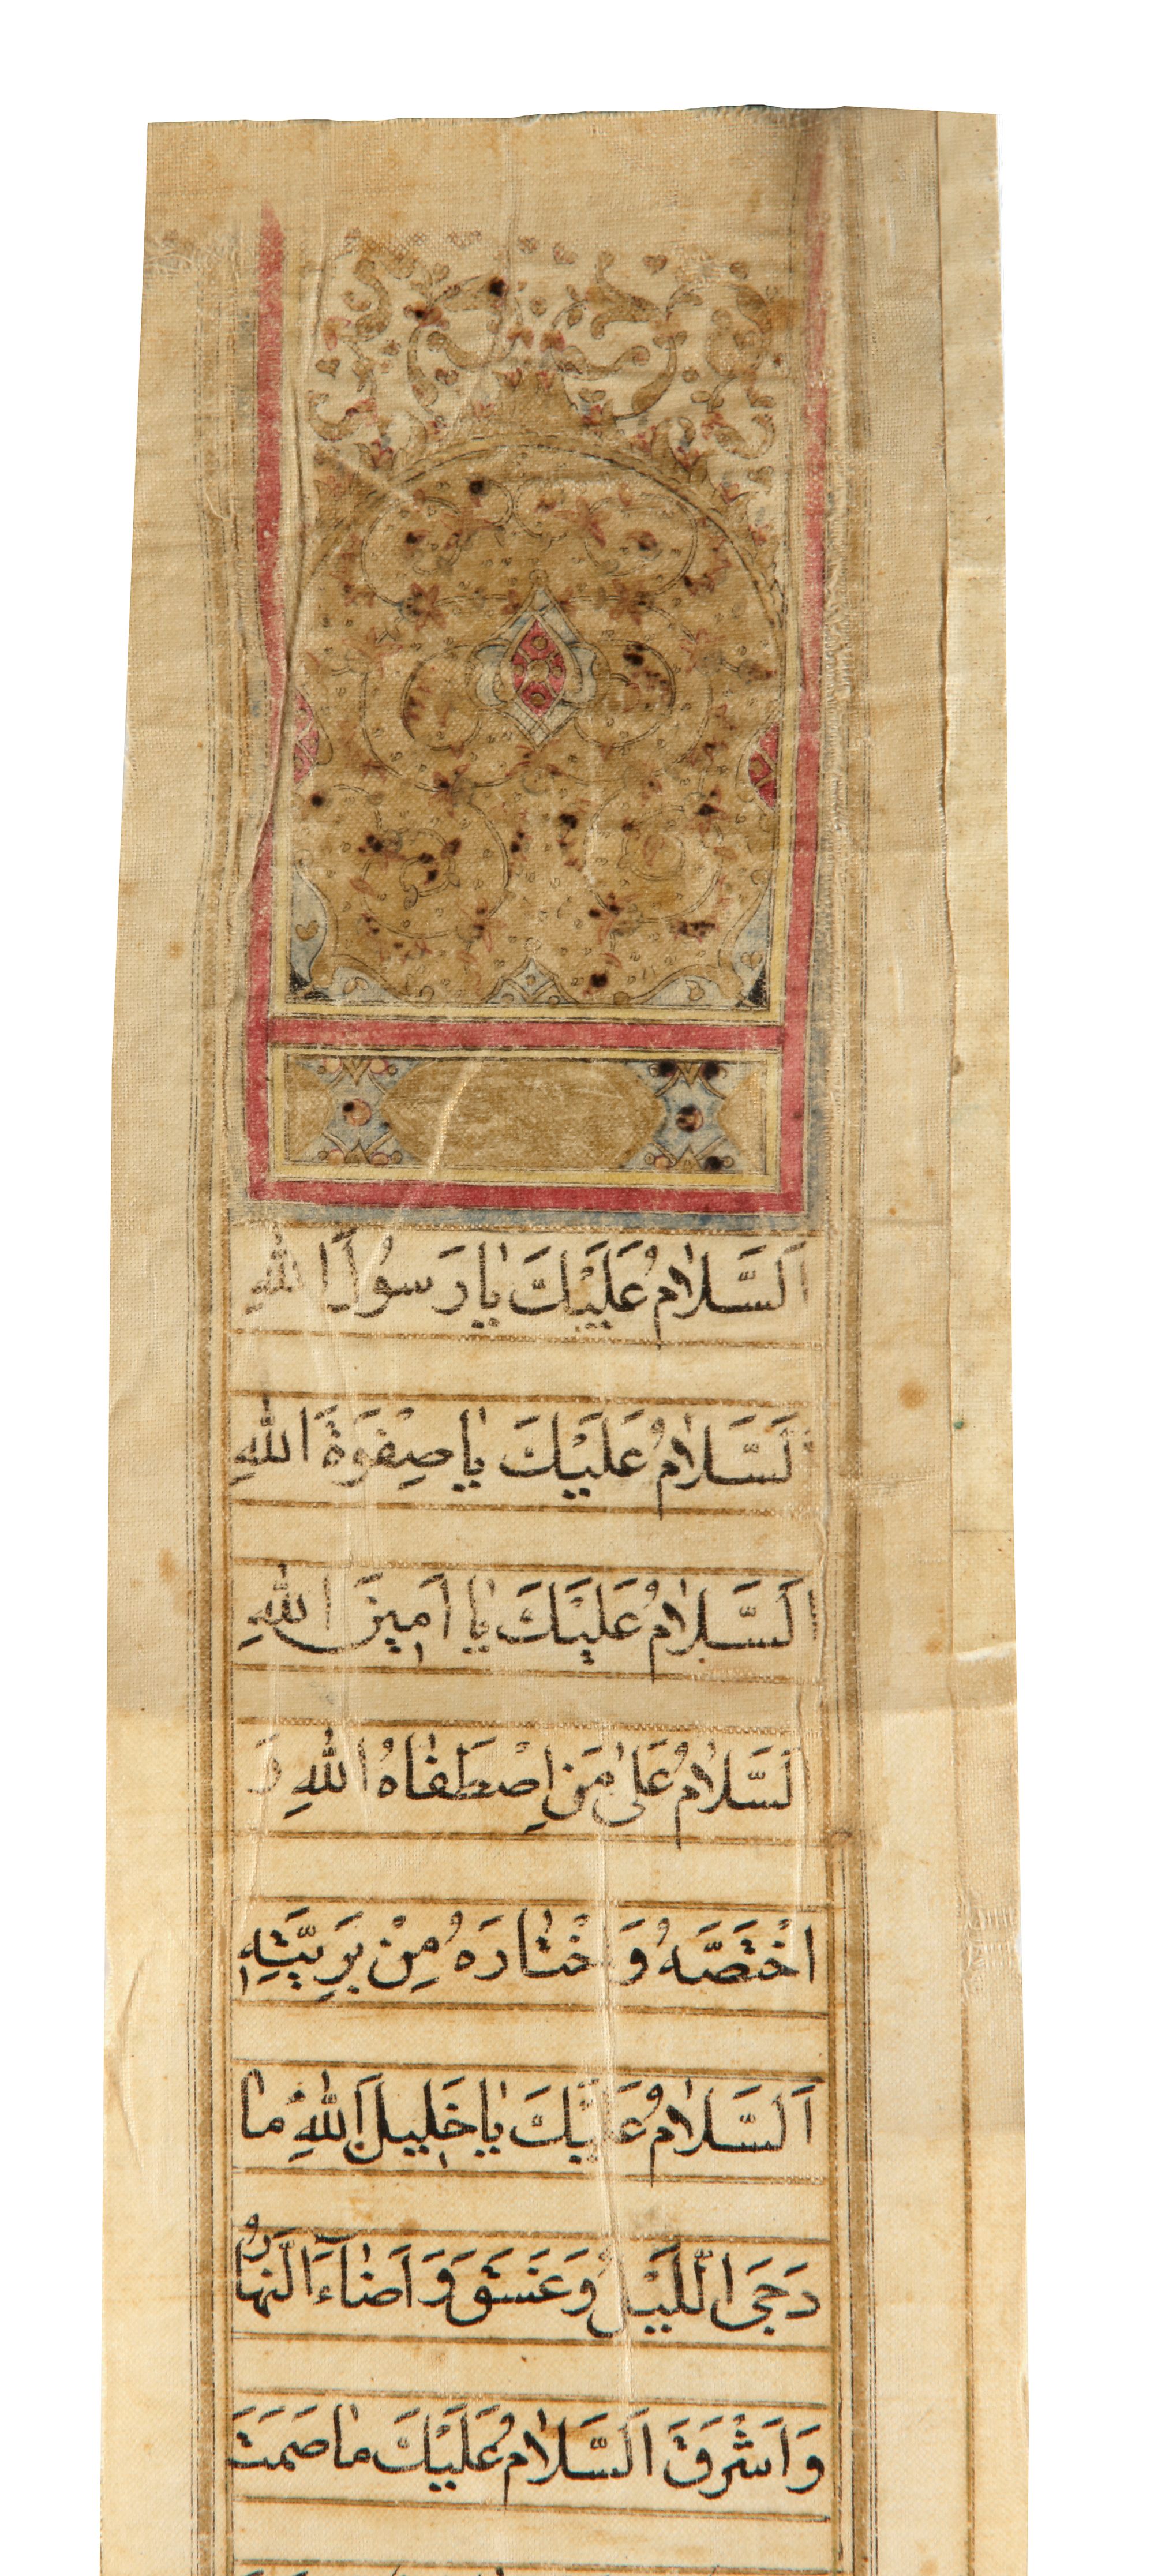 اَلسَّلاٰمُ عَلَيْكَ يٰا رَسوُلَ اللهِ
اَلسَّلاٰمُ عَلَيْكَ يٰا صِفوَةَ اللهِ
اَلسَّلاٰمُ عَلَيْكَ يٰا اَمينَ اللهِ
اَلسَّلاٰمُ عَلىٰ مَنِ اصْطَفٰاهُ اللهِ وَ
اخْتَصَّهُ وَاخْتٰارَهُ مِنْ بَرِيَّتِهِ
اَلسَّلاٰمُ عَلَيْكَ يٰا خَليلَ اللهِ مٰا
دَجَى الَّليْلُ وَعَسَقَ وَاَضٰاءَ النَّهارُ
وَاَشْرَقَ اَلسَّلاٰمُ عَلَيْكَ مٰا صَمَتَ